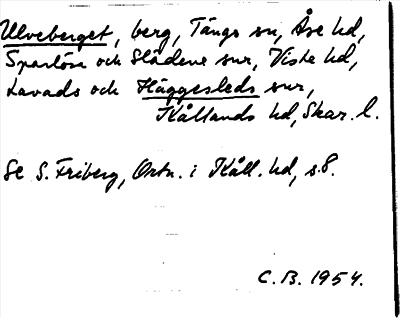 Ulveberget, berg, Tängs sn, Åse hd,
Sparlösa och Slädene snr, Viste hd,
Lavads och Häggesleds snr,
Kållands hd, Skar. l.
Se S. Friberg, Ortn. i Kåll. hd, s. 8.
C.B. 1954.